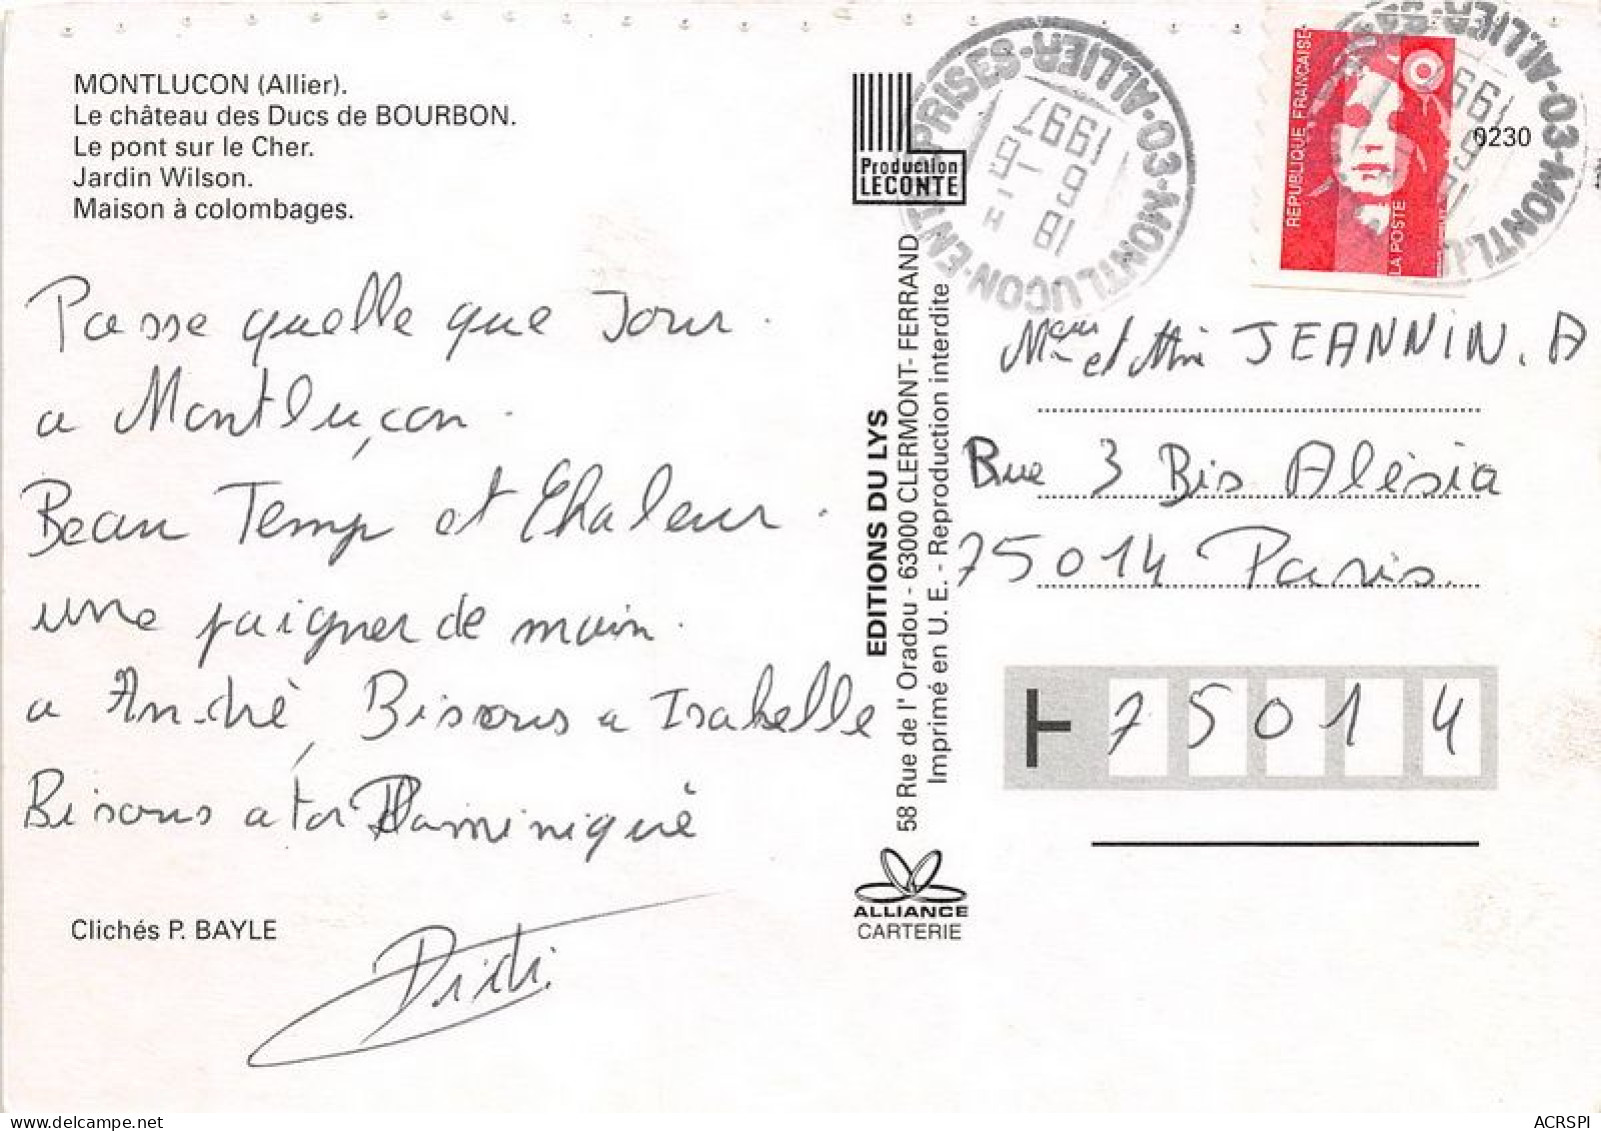 MONTLUCON (Allier).
Le château des Ducs de BOURBON.
Le pont sur le Cher.
Jardin Wilson.
Maison à colombages.
Passe quelle que Jour.
a Montluçon.
Beau Temp et Chaleur.
une paigner de main.
a André, Bisous a Isabelle
Bisous a toi Dominique
Didi
Clichés P. BAYLE
Production
LECONTE
EDITIONS DU LYS
58 Rue de l' Oradou - 63000 CLERMONT- FERRAND
Imprimé en U. E. - Reproduction interdite
ALLIANCE
CARTERIE
03-MONTLUÇON-ENTREPRISES-ALLIER
18 H
6-6
1997
REPUBLIQUE FRANCAISE
LA POSTE
0230
03-MONTLUÇON
ALLIER
1997
et Mme JEANNIN. A
Rue 3 Bis Alésia
75014 Paris.
75014
ACRSPI